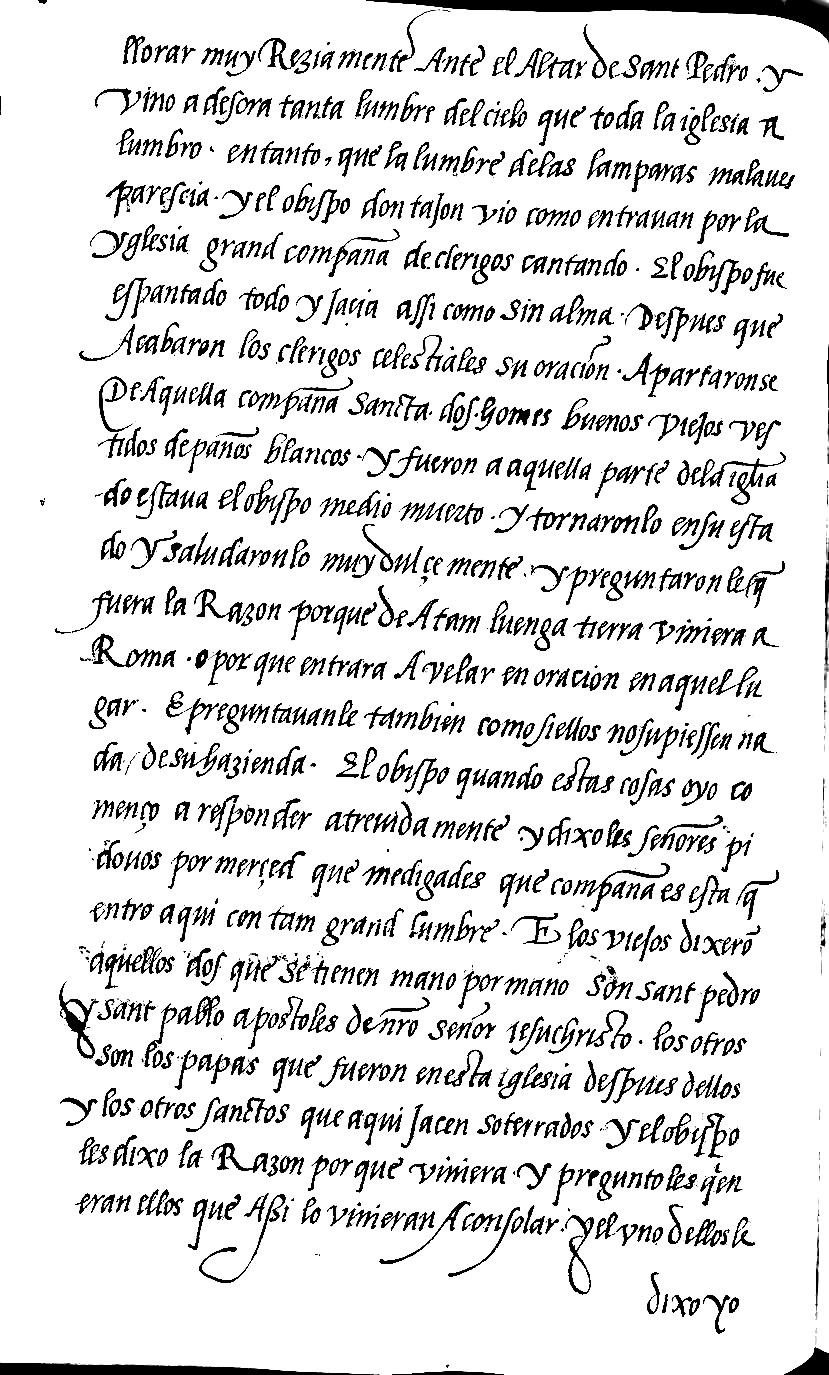 llorar muy Reziamente Ante el Altar de Sant Pedro . y
vino a desora tanta lumbre del cielo que toda la iglesia a
lumbro . en tanto, que la lumbre delas lamparas malaues
parescia . y el obispo don tajon vio como entrauan por la
yglesia grand compan̄a de clerigos cantando . El obispo fue
espantado todo y jacia assi como sin alma . Despues que
Acabaron los clerigos celestiales su oración . Apartaronse
De Aquella compan̄a Sancta dos homes buenos viejos ves
tidos de pan̄os blancos . y fueron a aquella parte dela igl̄ia
do estaua el obispo medio muerto . y tornaronlo en su esta
do y saludaronlo muy dulçemente . y preguntaronle q̄
fuera la Razon porque de Atam luenga tierra viniera a
Roma . o por que entrara A velar en oracion en aquel lu
gar . E preguntauanle tambien como si ellos no supiessen na
da / de su hazienda . El obispo quando estas cosas oyo co
menço a responder atreuidamente y dixoles sen̄ores pi
douos por merçed que me digades que compan̄a es esta q̄
entro aqui con tam grand lumbre . E los viejos dixerō
aquellos dos que se tienen mano por mano son sant pedro
y sant pablo apostoles de nr̄o sen̄or iesuchristo . los otros
son los papas que fueron en esta iglesia despues dellos
y los otros sanctos que aqui jacen soterrados . y el obispo
les dixo la Razon por que viniera . y preguntoles q̄en
eran ellos que Aßi lo vinieran A consolar . y el vno dellos le
dixo yo